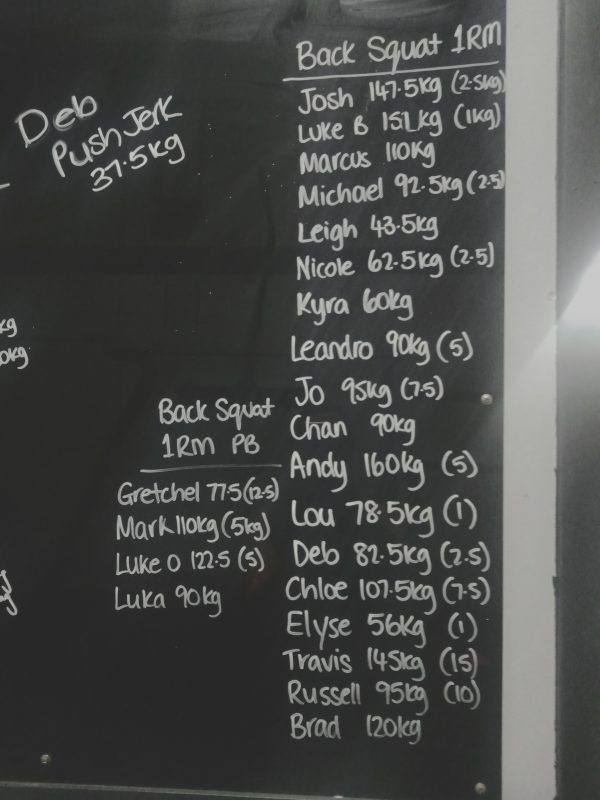 Deb
Push Jerk
37.5kg
kg
0kg
Back Squat
1RM PB
Gretchel 77.5 (12.5)
Mark 110kg (5kg)
Luke O 122.5 (5)
Luka 90kg
Back Squat 1RM
Josh 147.5kg (2.5kg)
Luke B 151kg (1kg)
Marcus 110kg
Michael 92.5kg (2.5)
Leigh 43.5kg
Nicole 62.5kg (2.5)
Kyra 60kg
Leandro 90kg (5)
Jo 95kg (7.5)
Chan 90kg
Andy 160kg (5)
Lou 78.5kg (1)
Deb 82.5kg (2.5)
Chloe 107.5kg (7.5)
Elyse 56kg (1)
Travis 145kg (15)
Russell 95kg (10)
Brad 120kg